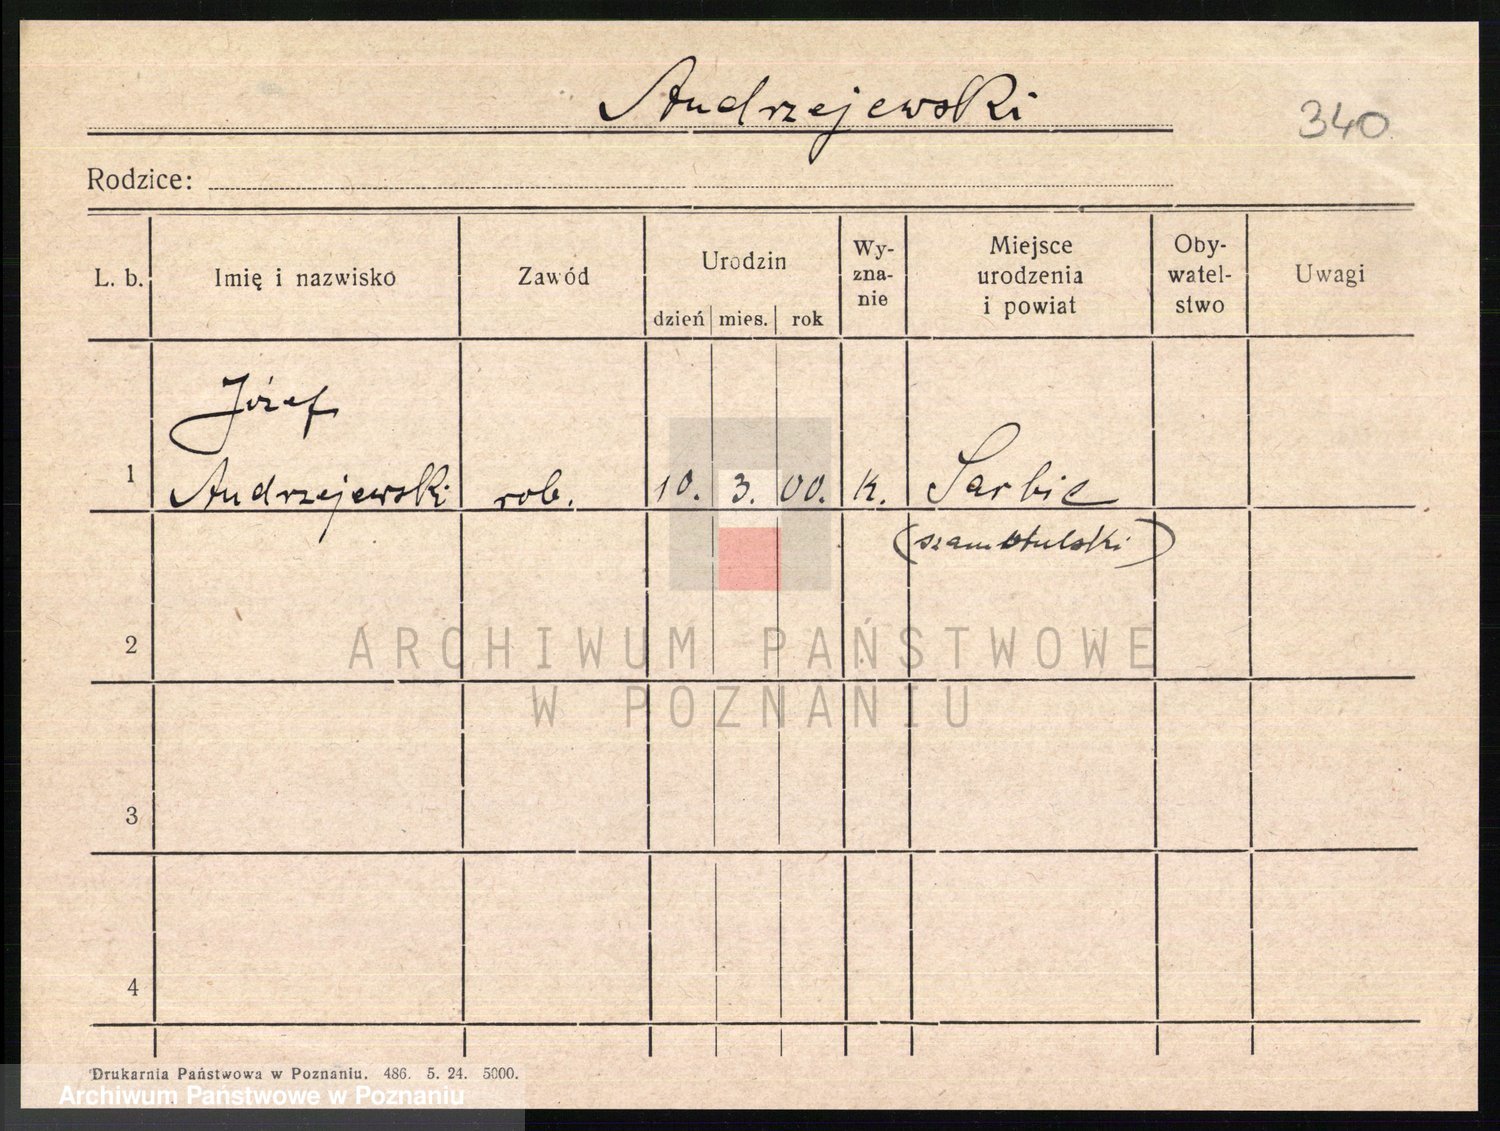 Andrzejewski
340
Rodzice:
L. b. Imię i nazwisko Zawód Urodzin Wy-zna-nie Miejsce urodzenia i powiat Oby-watel-stwo Uwagi
dzień mies. rok
Józef
1 Andrzejewski rob. 10. 3. 00. k. Sarbie
(szamotulski)
2
ARCHIWUM PAŃSTWOWE
W POZNANIU
3
4
Drukarnia Państwowa w Poznaniu. 486. 5. 24. 5000.
Archiwum Państwowe w Poznaniu